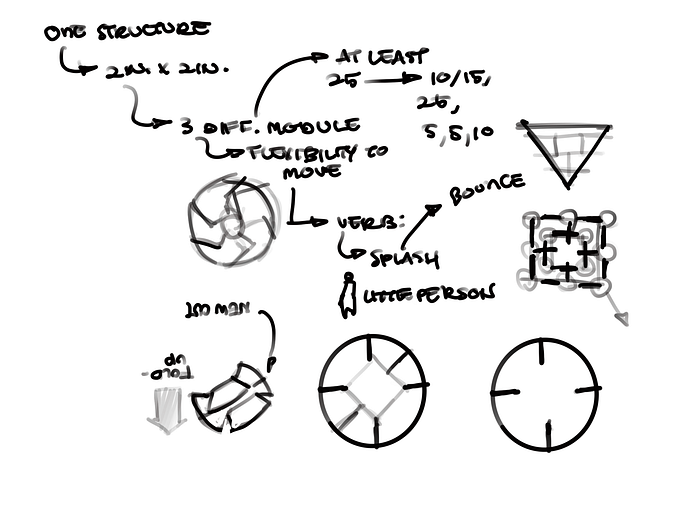 ONE STRUCTURE
2IN. X 2IN.
AT LEAST
25 → 10/15,
25,
5,5,10
3 DIFF. MODULE
FLEXIBILITY TO
MOVE
BOUNCE
VERB:
SPLASH
LITTLE PERSON
FOLD-
UP